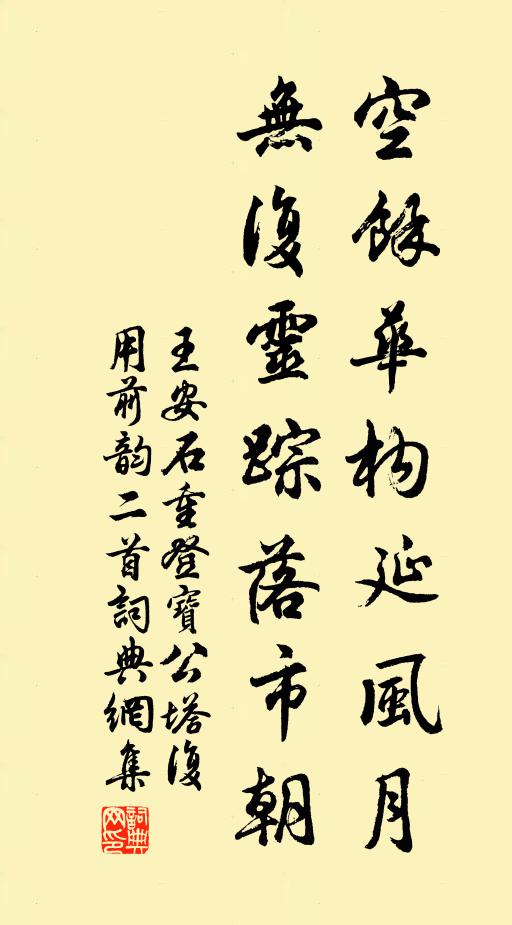 空餘華构延風月
無復靈踪落市朝
王安石重登寶公塔復
用前韵二首詞典網集
詞典
网印